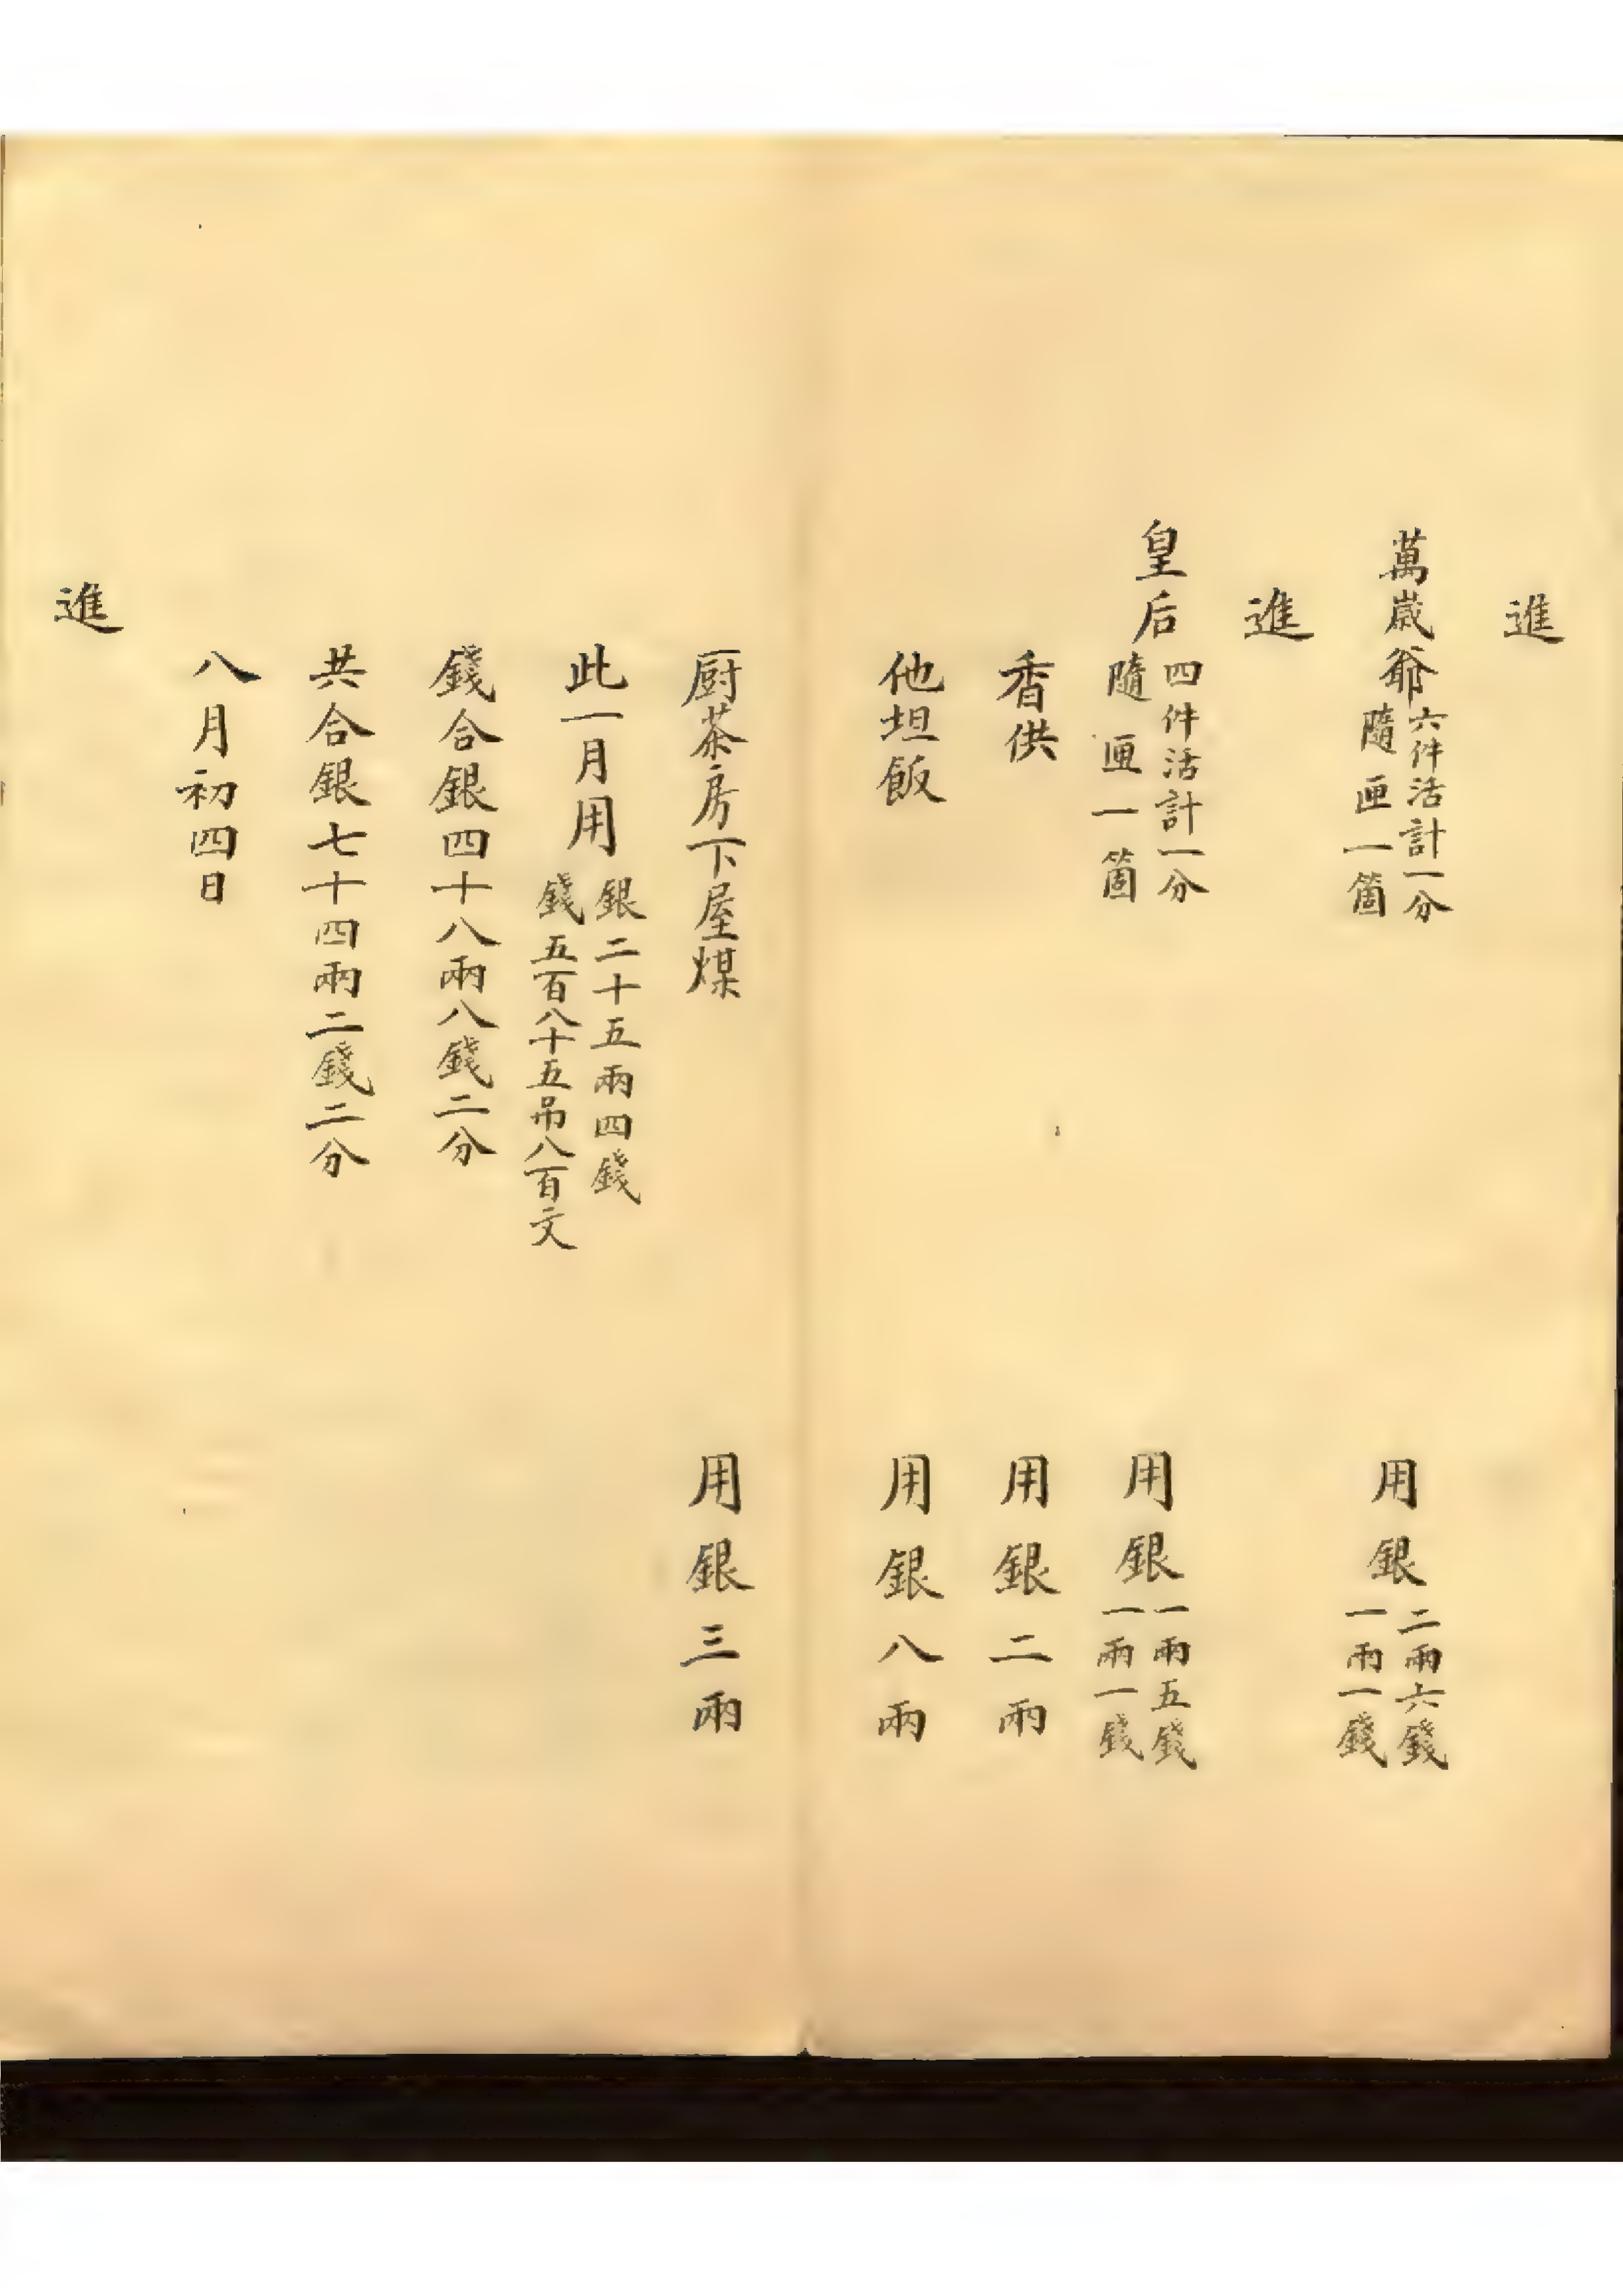 進
萬歲爺 六件活計一分 隨匣一箇 用銀 二兩六錢 一兩一錢
進
皇后 四件活計一分 隨匣一箇 用銀 一兩五錢 一兩一錢
香供 用銀二兩
他坦飯 用銀八兩
厨茶房下屋煤 用銀三兩
此一月用 銀二十五兩四錢 錢五百八十五吊八百文
錢合銀四十八兩八錢二分
共合銀七十四兩二錢二分
八月初四日
進